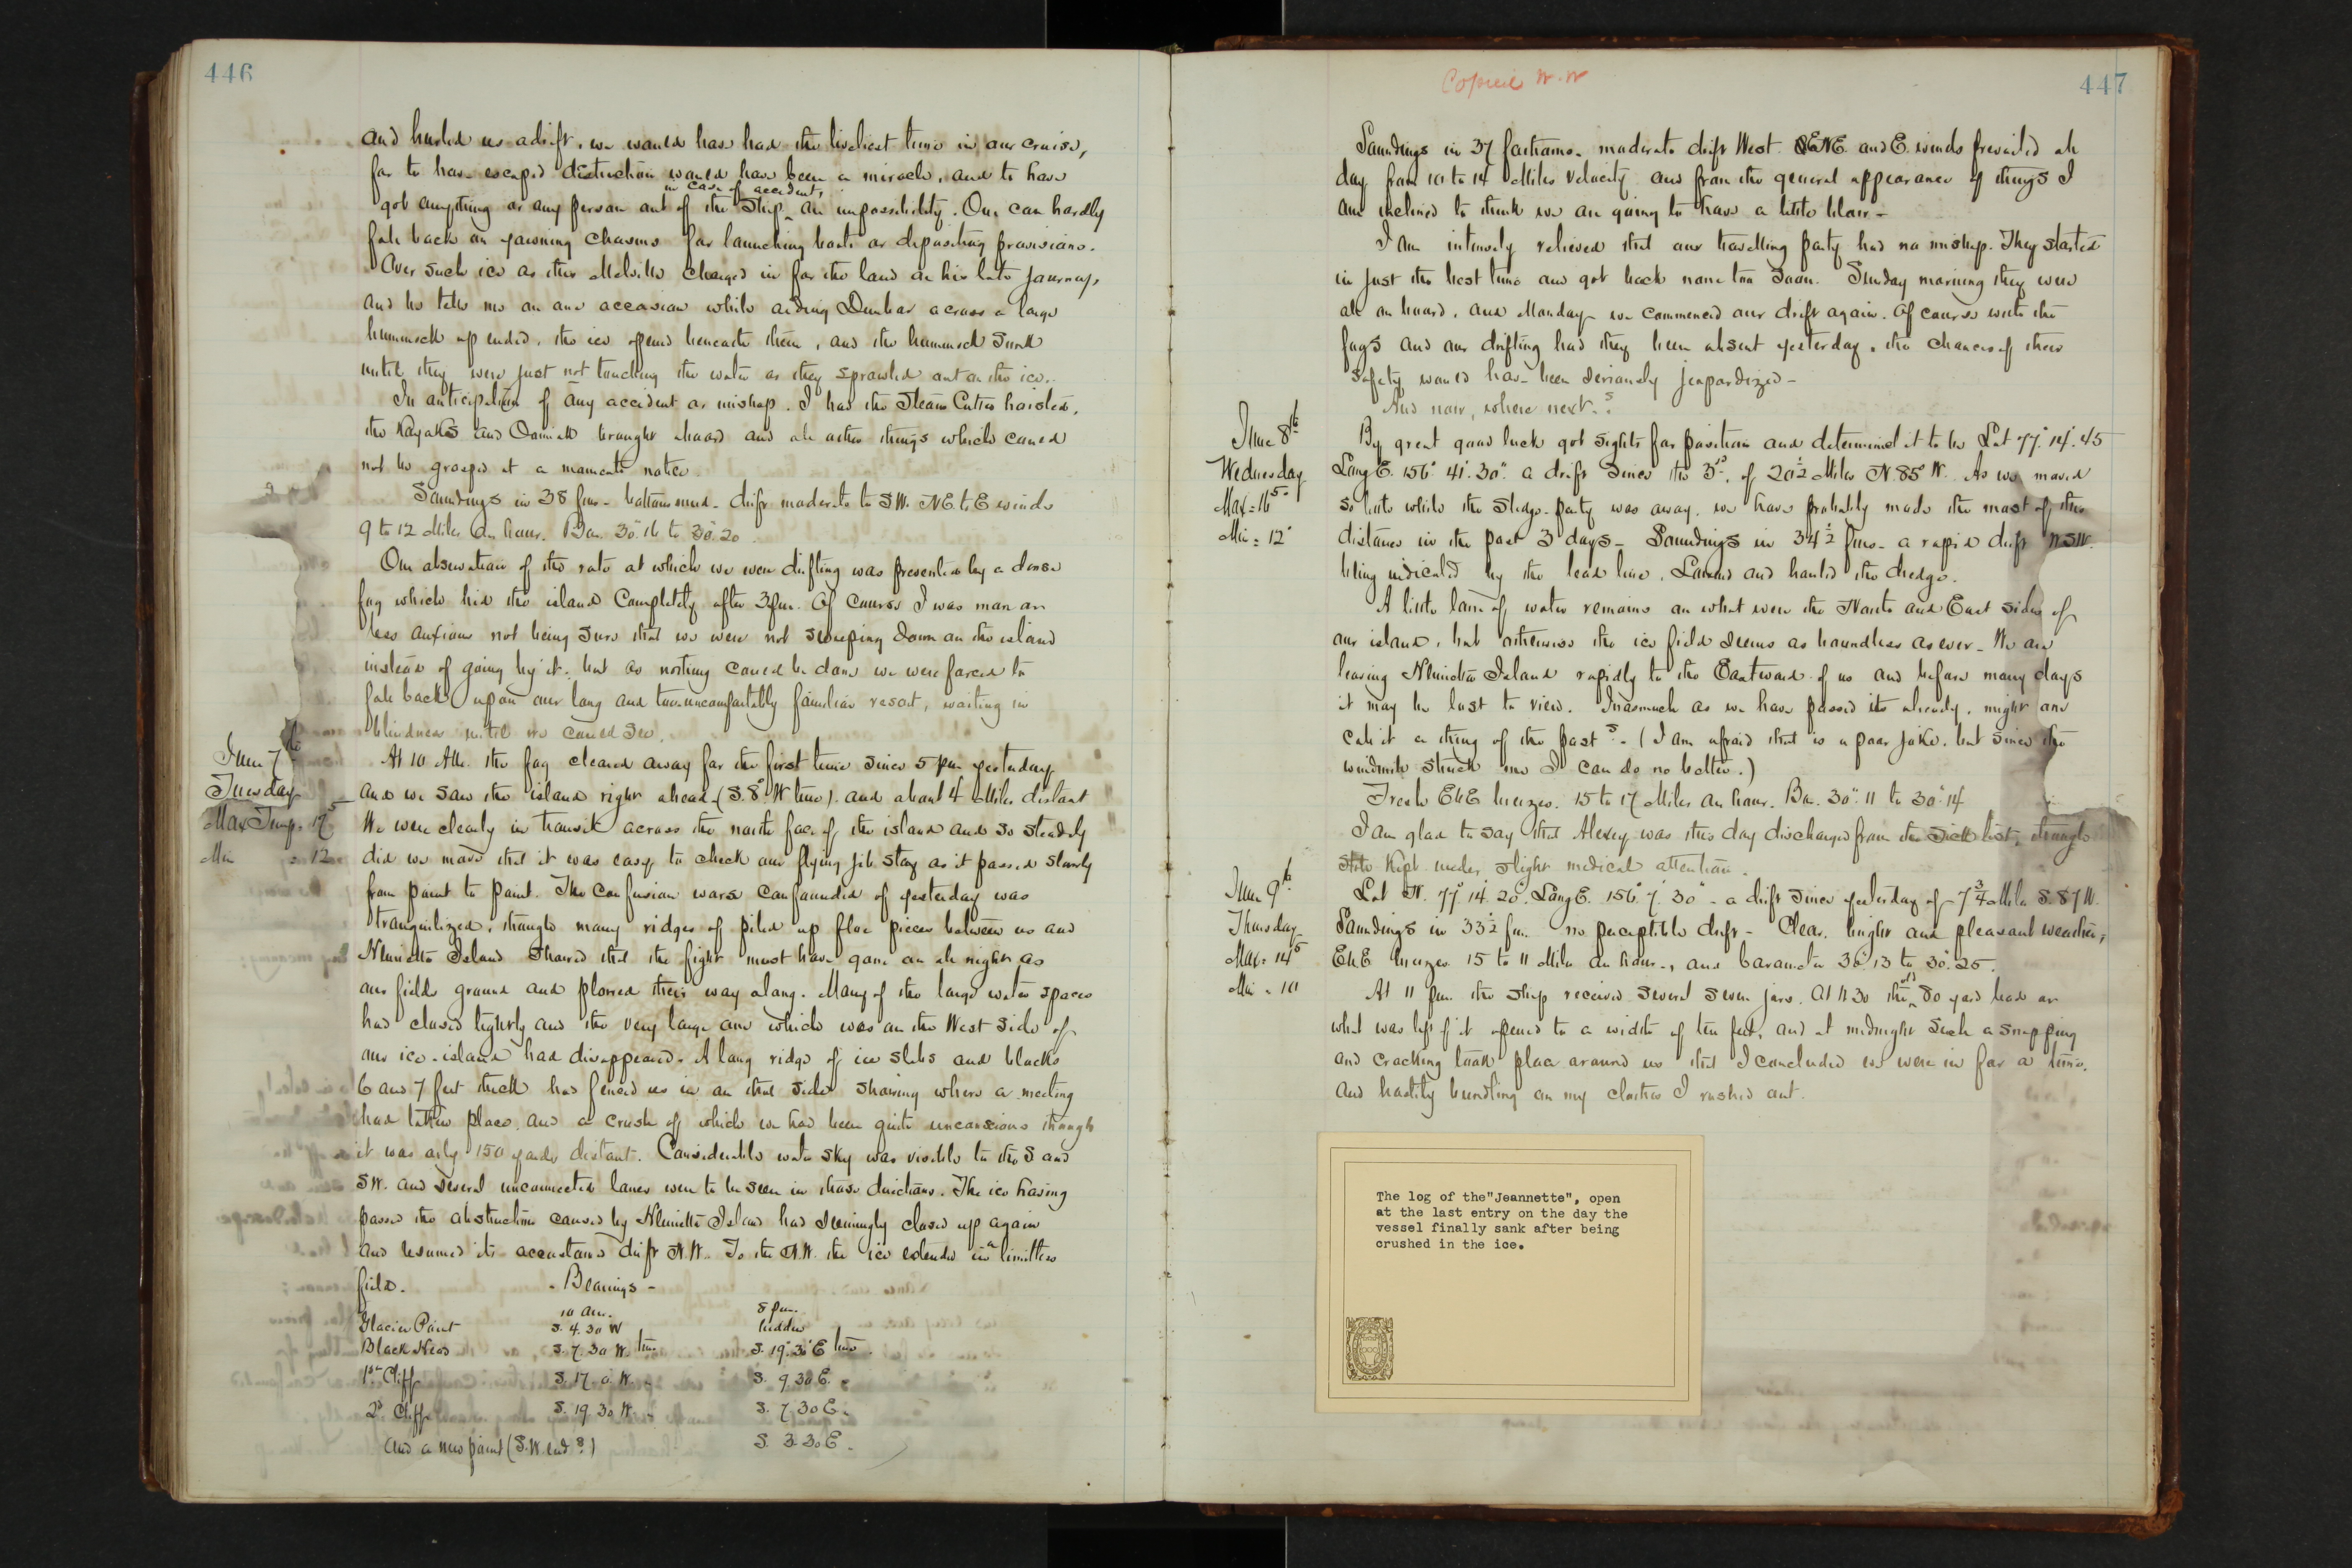 446
and hurled us adrift, we would have had the liveliest time in our cruise,
for to have escaped destruction would have been a miracle, and to have
got anything or any person out of the ship in case of accident, an impossibility. One can hardly
fall back on yawning chasms for launching boats or depositing provisions.
Over such ice as this Melville charged in for the land on his late journey,
and he tells me on one occasion while aiding Dunbar across a large
hummock up ended, the ice opened beneath them, and the hummock sunk
until they were just not touching the water as they sprawled out on the ice.
In anticipation of any accident or mishap. I had the Steam Cutter hoisted,
the Kayaks and Oomiak brought aboard and all other things which could
not be grasped at a moments notice.
Soundings in 38 fms - bottom mud - drift moderate to SW. NE to E winds
9 to 12 Miles an hour. Bar. 30.16 to 30.20
Our observation of the rate at which we were drifting was prevented by a dense
fog which hid the island completely after 3 pm. Of course I was more or
less anxious not being sure that we were not sweeping down on the island
instead of going by it. but as nothing could be done we were forced to
fall back upon our long and too uncomfortably familiar resort, waiting in
blindness until we could see.
June 7th
Tuesday
Max Temp. 17.5
Min = 12
At 10 AM. the fog cleared away for the first time since 5 pm yesterday
and we saw the island right ahead (S. 8° W true). and about 4 Miles distant
We were clearly in transit across the north face of the island and so steadily
did we move that it was easy to check our flying jib stay as it passed slowly
from point to point. The confusion worse confounded of yesterday was
tranquilized, though many ridges of piled up floe pieces between us and
Henrietta Island showed that the fight must have gone on all night as
our field ground and plowed their way along. Many of the large water spaces
had closed tightly and the very large one which was on the West side of
our ice-island had disappeared. A long ridge of ice slabs and blocks
6 and 7 feet thick had fenced us in on that side showing where a meeting
had taken place and a crush of which we had been quite unconscious though
it was only 150 yards distant. Considerable water sky was visible to the S and
SW. and several unconnected lanes were to be seen in those directions. The ice having
passed the obstruction caused by Henrietta Island had seemingly closed up again
and resumed its accustomed drift N.W. To the N.W. the ice extends in a limitless
field. - Bearings -
10 am. 8 pm.
Glacier Point S. 4.30 W hidden
Black Head S. 7 30 W. true S. 19° 30' E true.
1st Cliff S. 17 0. W. " S. 9 30 E. "
2d Cliff S. 19 30 W. " S. 7 30 E. "
and a new point (S.W. end?) S. 3 30 E. "
Copied W. W
447
Soundings in 37 fathoms. moderate drift West. ENE. and E. winds prevailed all
day from 10 to 14 Miles velocity and from the general appearance of things I
am inclined to think we are going to have a little blow -
I am intensely relieved that our travelling party had no mishap. They started
in just the best time and got back none too soon. Sunday morning they were
all on board, and Monday we commenced our drift again. Of course with the
fogs and our drifting had they been absent yesterday, the chances of their
safety would have been seriously jeopardized -
And now, where next?
June 8th
Wednesday
Max = 16.5
Min = 12°
By great good luck got sights for position and determined it to be Lat 77°. 14'. 45
Long E. 156° 41'. 30". a drift since the 3d. of 20½ Miles N. 85° W. As we moved
so little while the sledge-party was away, we have probably made the most of this
distance in the past 3 days - Soundings in 34½ fms - a rapid drift WSW.
being indicated by the lead line. Lowered and hauled the dredge.
A little lane of water remains on what were the North and East sides of
our island, but otherwise the ice field seems as boundless as ever. We are
leaving Henrietta Island rapidly to the Eastward of us and before many days
it may be lost to view. Inasmuch as we have passed it already, might one
call it a thing of the past? - (I am afraid that is a poor joke. but since the
windmill struck me I can do no better.)
Fresh ENE breezes. 15 to 17 Miles an hour. Bar. 30". 11 to 30". 14
I am glad to say that Alexey was this day discharged from the sick list, though
still kept under slight medical attention.
June 9th
Thursday
Max. 14.5
Min. 10
Lat N. 77° 14'. 20". Long E. 156° 7'. 30" - a drift since yesterday of 7¾ Mile S. 87 W.
Soundings in 33½ fm. no perceptible drift - Clear, bright and pleasant weather,
ENE breezes 15 to 11 Miles an hour, and barometer 30.13 to 30.25.
At 11 pm. the ship received several severe jars. At 11 30 the old 80 yard lead or
what was left of it opened to a width of ten feet, and at midnight such a snapping
and cracking took place around us that I concluded we were in for a time,
and hastily bundling on my clothes I rushed out.
The log of the"Jeannette", open
at the last entry on the day the
vessel finally sank after being
crushed in the ice.